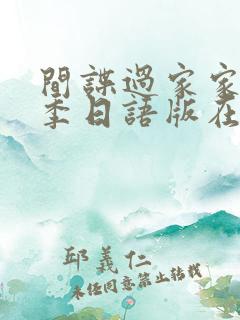 間諜過家家
季日語版在
邱義仁
未任同意禁止转载